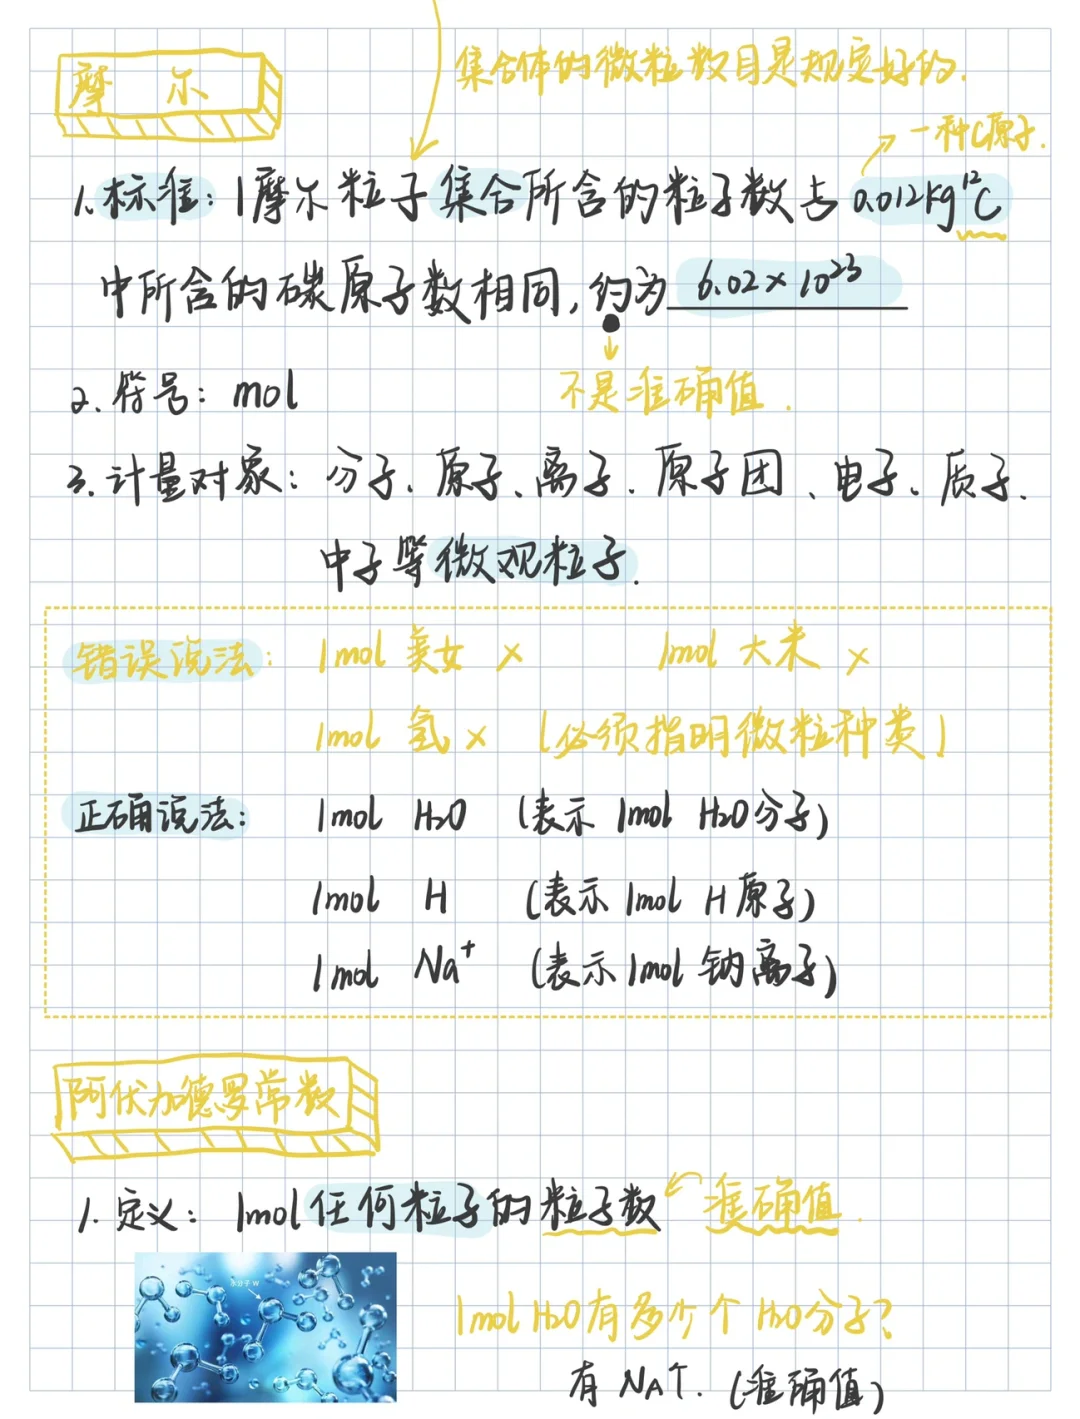 集合体的微粒数目是规定好的.
摩 尔
一种C原子.
1.标准：1摩尔粒子集合所含的粒子数与0.012kg¹²C
中所含的碳原子数相同，约为 6.02×10²³
不是准确值.
2.符号：mol
3.计量对象：分子、原子、离子、原子团、电子、质子、
中子等微观粒子.
错误说法： 1mol 美女 × 1mol 大米 ×
1mol 氢 × (必须指明微粒种类)
正确说法： 1mol H₂O (表示 1mol H₂O分子)
1mol H (表示 1mol H原子)
1mol Na⁺ (表示 1mol 钠离子)
阿伏加德罗常数
1.定义：1mol任何粒子的粒子数 准确值.
水分子 W
1mol H₂O有多少个 H₂O分子?
有 NA个. (准确值)